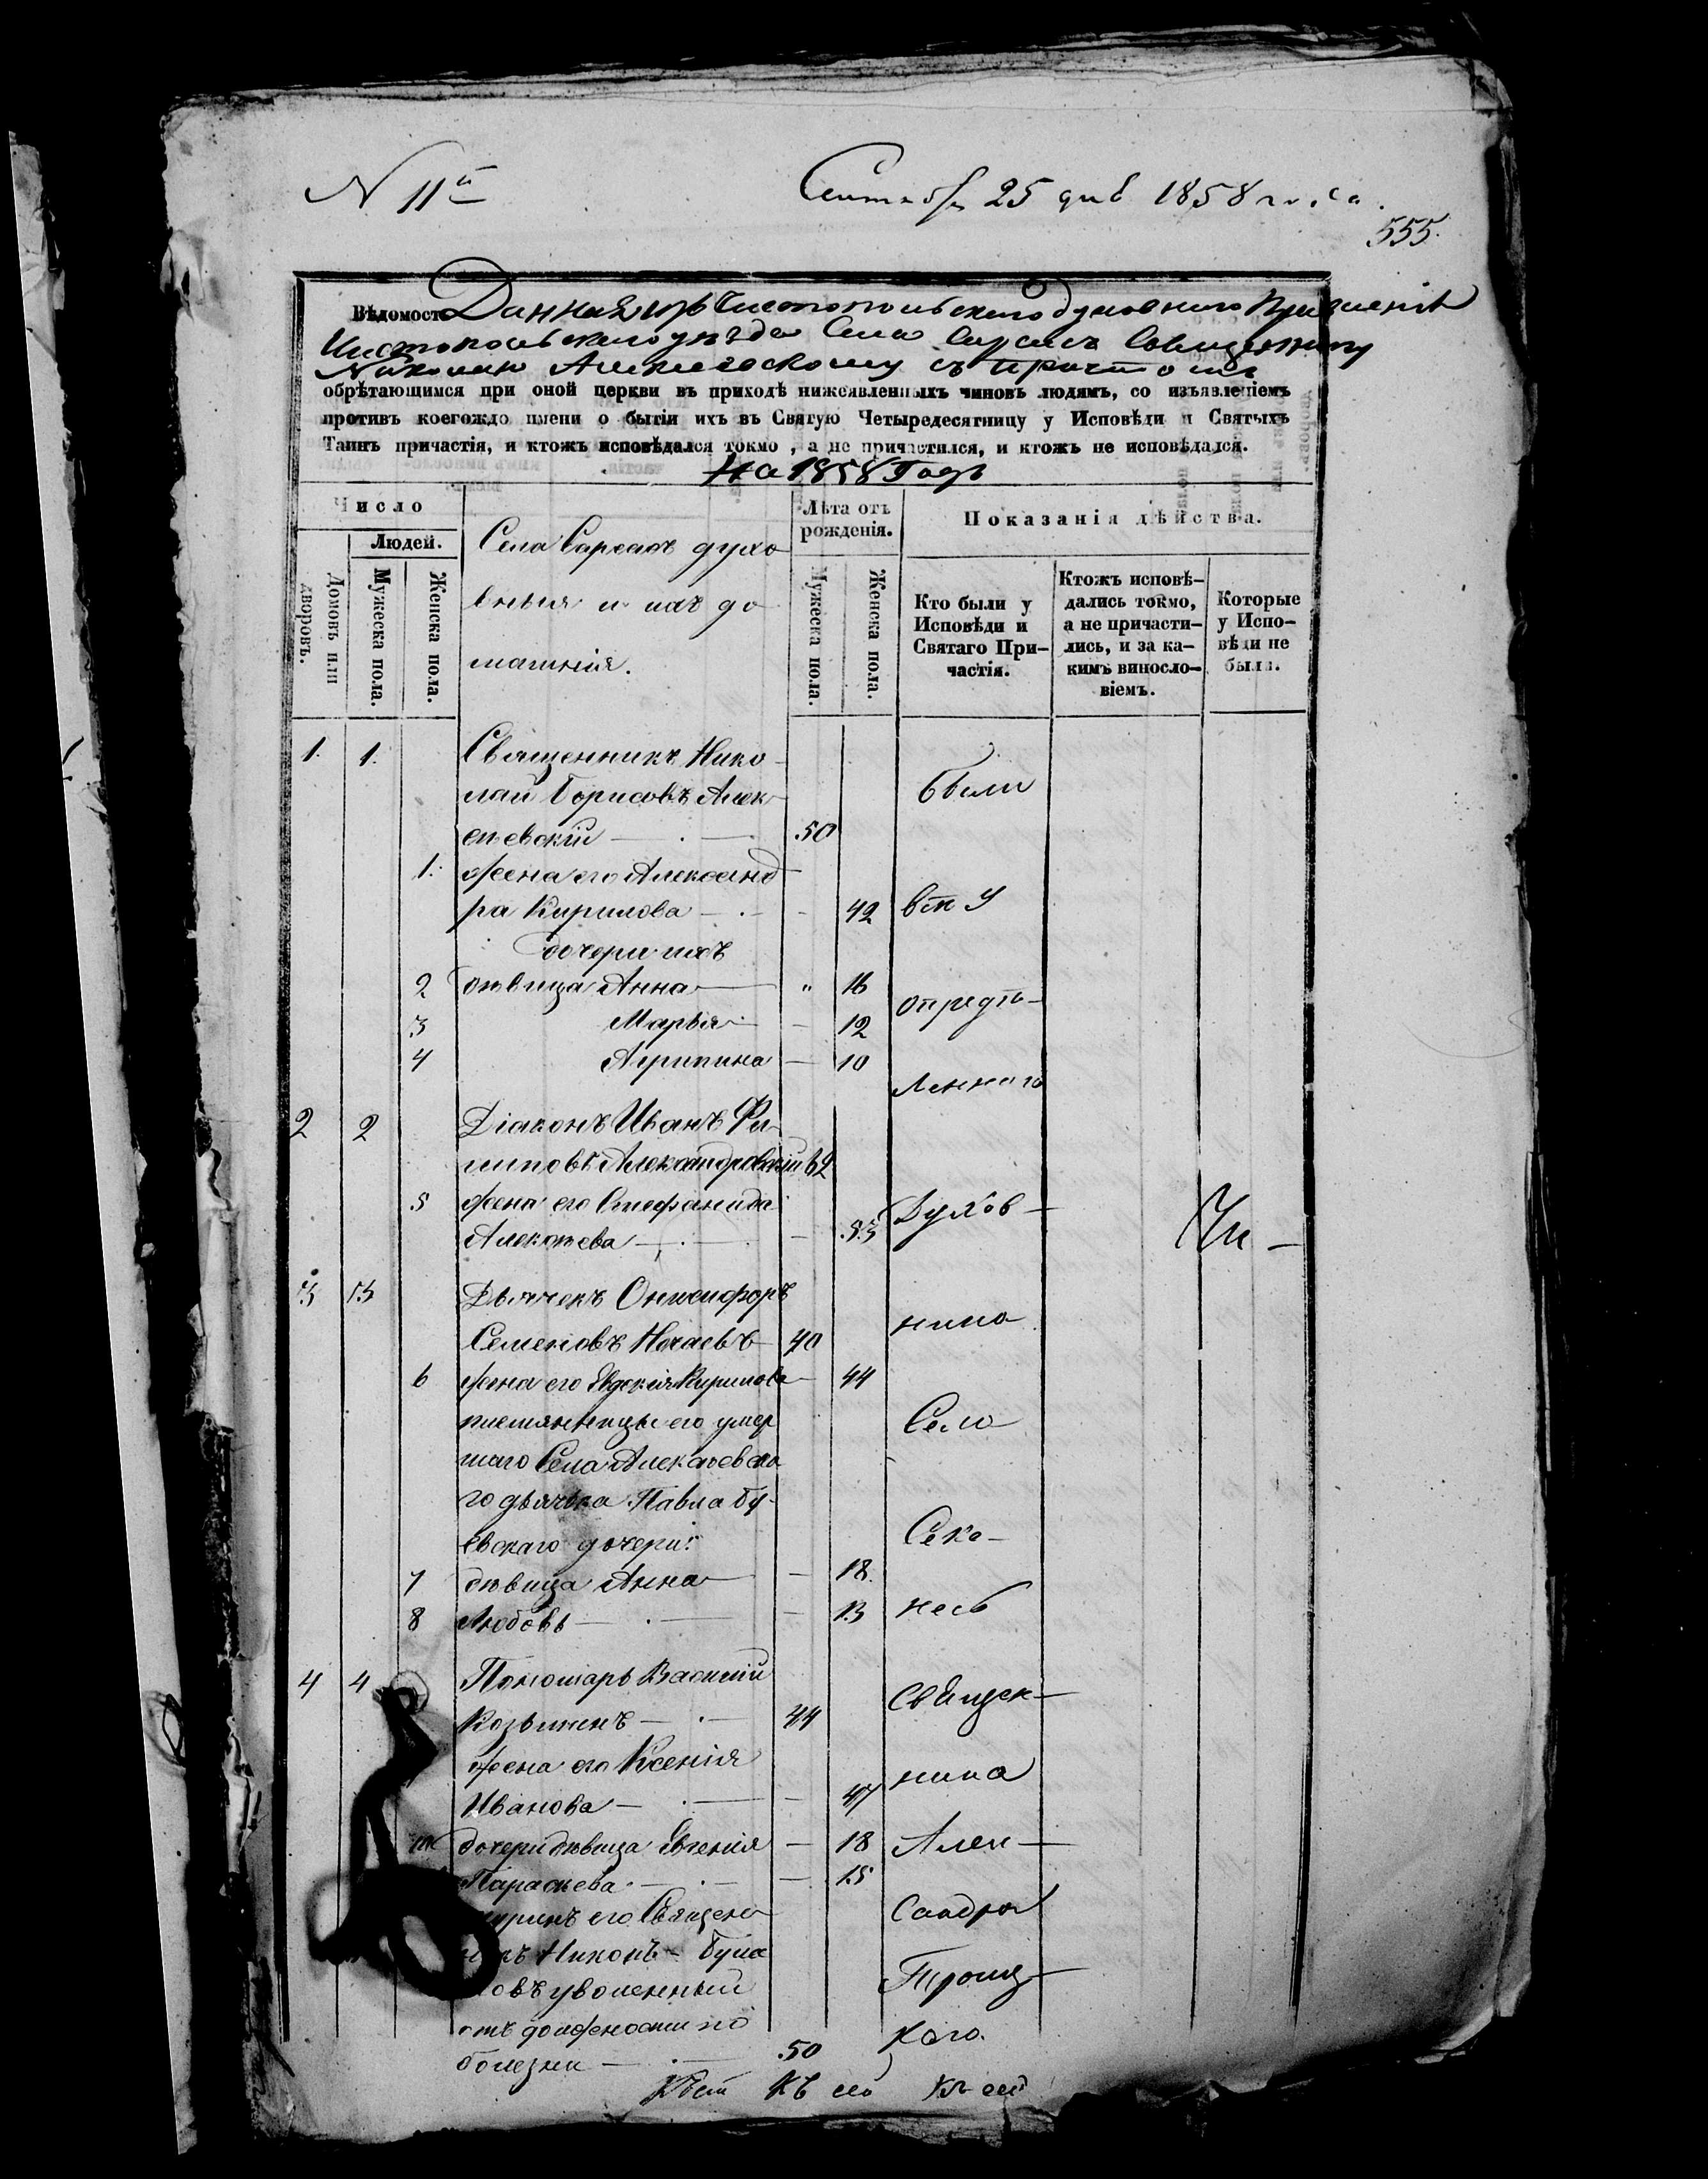 N 11й
Сентября 25 дня 1858 года.
555.
Вѣдомость Данная изъ Чистопольскаго духовнаго Правленія
Чистопольскаго уѣзда Села Сарсасъ Священнику
Николаю Алексѣевскому съ причтомъ
обрѣтающимся при оной церкви въ приходѣ нижеявленныхъ чиновъ людямъ, со изъявленіемъ
противъ коегождо имени о бытіи ихъ въ Святую Четыредесятницу у Исповѣди и Святыхъ
Таинъ причастія, и ктожъ исповѣдался токмо, а не причастился, и ктожъ не исповѣдался.
На 1858 Годъ
Число
Людей.
Домовъ или дворовъ.
Мужеска пола.
Женска пола.
Села Сарсасъ духо
вныя и ихъ до
машнія.
Лѣта отъ рожденія.
Мужеска пола.
Женска пола.
Показанія дѣйства.
Кто были у
Исповѣди и
Святаго При-
частія.
Ктожъ исповѣ-
дались токмо,
а не причасти-
лись, и за ка-
кимъ винословіемъ.
Которые
у Испо-
вѣди не
были.
1. 1. Священникъ Нико
лай Борисовъ Алек-
сѣевскій 50 были
1. жена его Александ
ра Кирилова 42 въ у
дочери ихъ
2 дѣвица Анна 16
3 Марья 12 опредѣ-
4 Агрипина 10
леннаго
2 2 Діаконъ Иванъ Фи
липовъ Александровскій
5 жена его Стефанида Духов-
Алексѣева 53 Чи-
3 3 Дьячекъ Онисифоръ
Семеновъ Ногаевъ 40 ника
6 жена его Евдокія Кирилова 44
племянницы его умер
шаго Села Алексѣевска Села
го дьячка Павла Бу-
евскаго дочери: Секе-
7 дѣвица Анна 18
8 Любовь 13 несь
4 4 Пономарь Василій
Козьминъ 44 Священ-
жена его Ксенія
Иванова 47 ника
дочери дѣвица Евгенія 18 Алек-
Параскева 15
его Священ сандра
Никонъ
уволенный Троиц-
отъ должности по
болезни 50 каго.